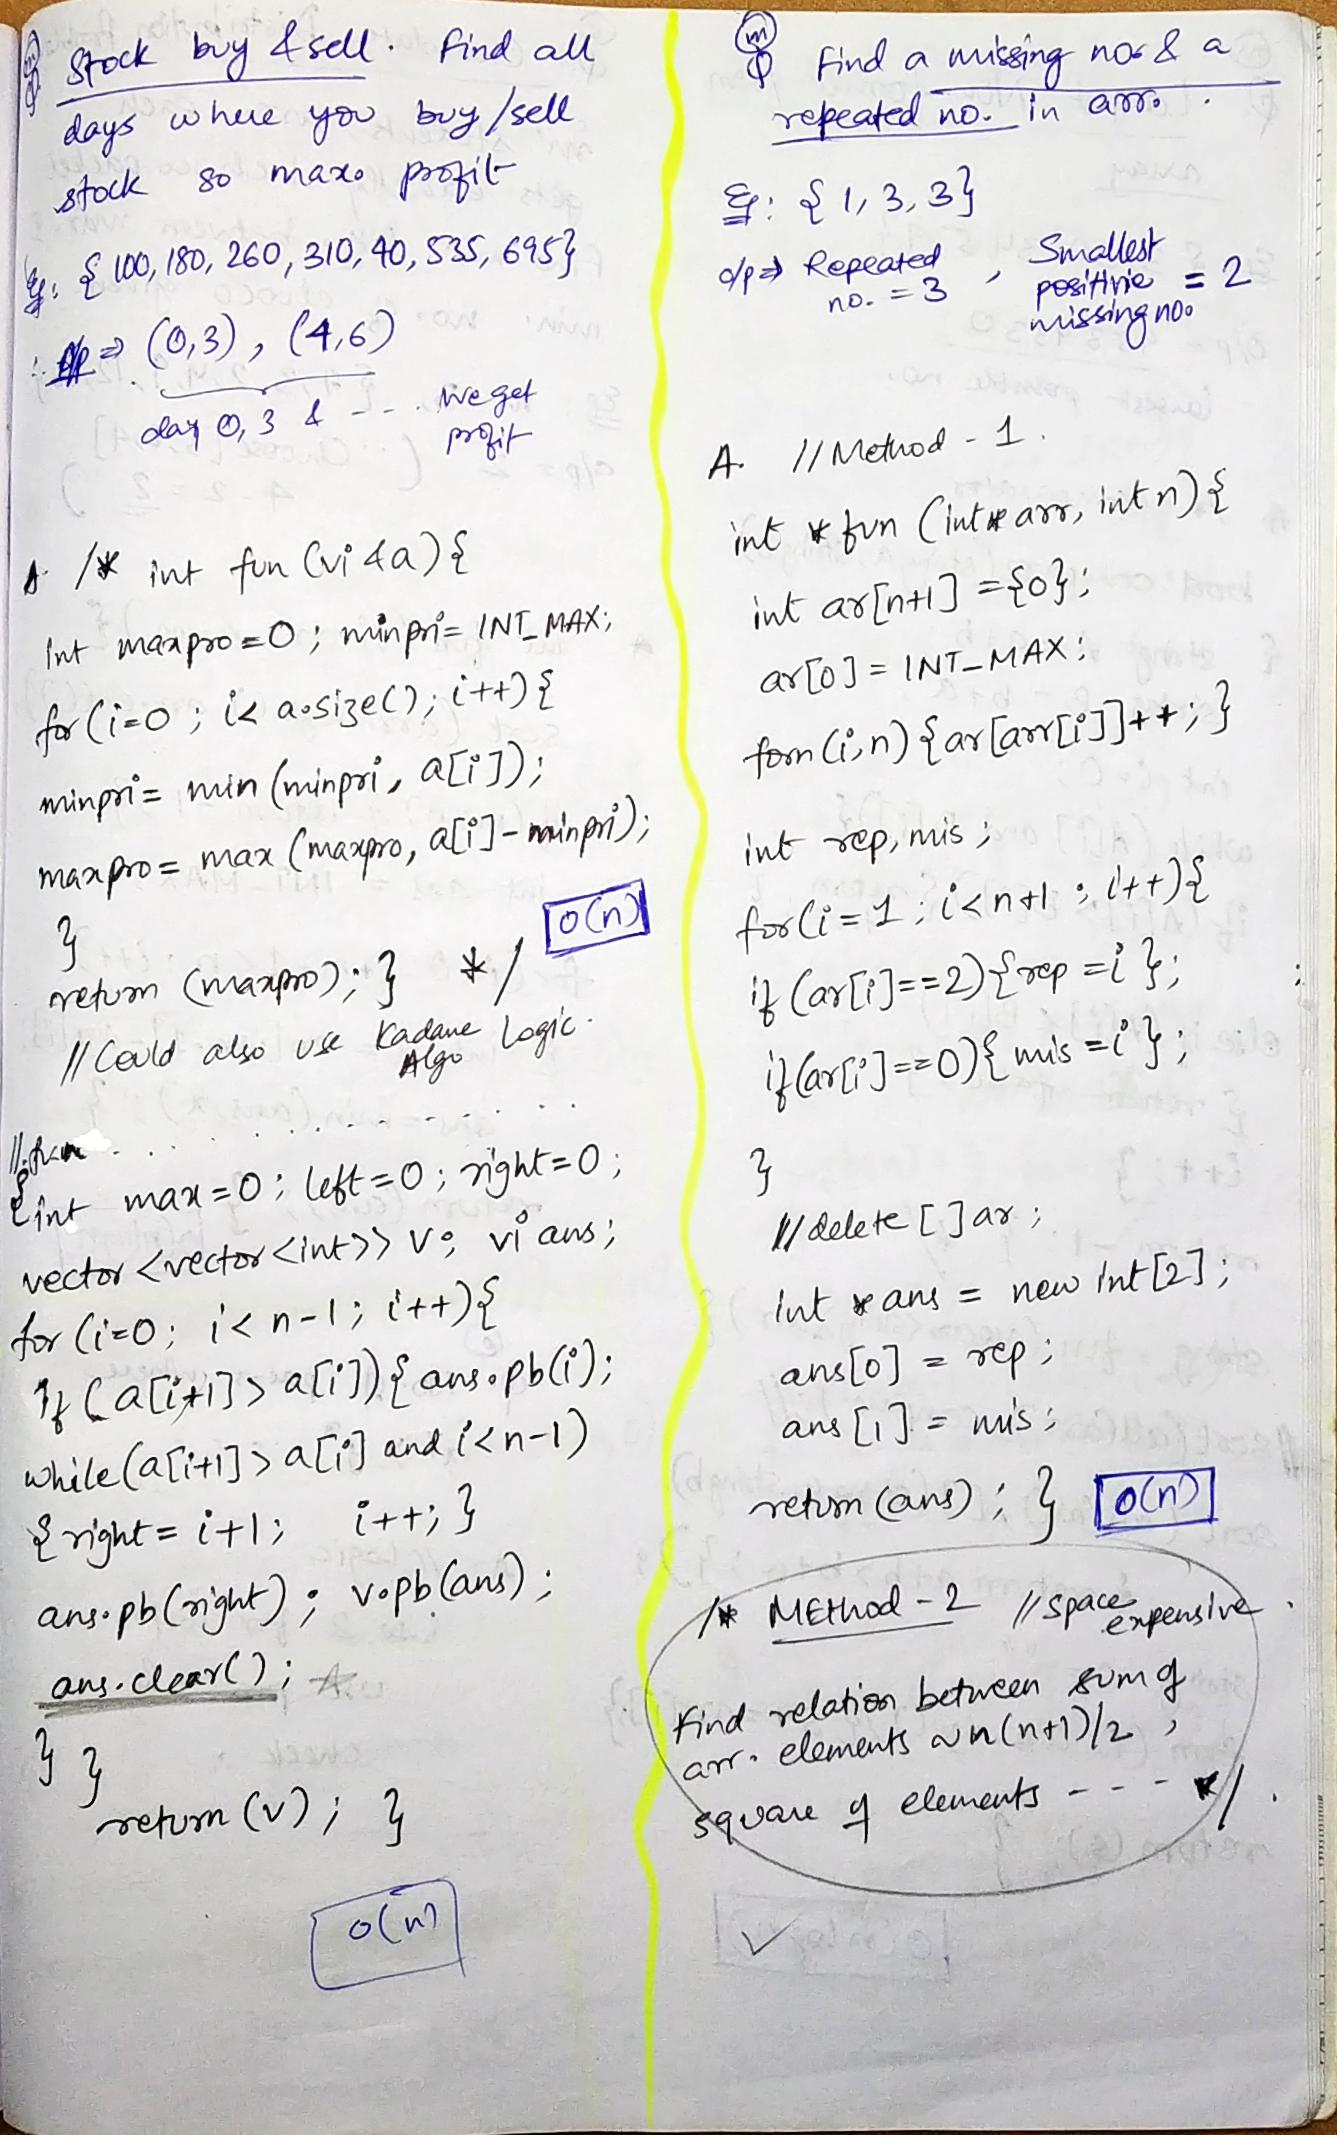 Stock buy & sell. Find all
days where you buy/sell
stock so max. profit
Eg: { 100, 180, 260, 310, 40, 535, 695}
∴ o/p ⇒ (0,3), (4,6)
day 0, 3 & - - . we get
profit
A. /* int fun (vi &a) {
int maxpro = 0; minpri = INT_MAX;
for (i=0; i< a.size(); i++) {
minpri = min (minpri, a[i]);
maxpro = max (maxpro, a[i]-minpri);
}
O(n)
return (maxpro); } */
// Could also use Kadane Logic.
Algo
{int max=0; left=0; right=0;
vector <vector <int>> v; vi ans;
for (i=0; i< n-1; i++) {
If (a[i+1] > a[i]) { ans.pb(i);
while (a[i+1] > a[i] and i<n-1)
{ right = i+1; i++; }
ans.pb(right); v.pb(ans);
ans.clear();
} }
return (v); }
O(n)
m
Q Find a missing no. & a
repeated no. in arr.
Eg: { 1, 3, 3}
o/p ⇒ Repeated no. = 3 , Smallest positive missing no. = 2
A. // Method - 1.
int * fun (int * arr, int n) {
int ar[n+1] = {0};
ar[0] = INT_MAX;
forn (i,n) {ar[arr[i]]++; }
int rep, mis;
for (i = 1; i<n+1; i++) {
if (ar[i]==2) {rep = i };
if (ar[i]==0) { mis = i };
}
// delete [ ] ar;
int * ans = new int [2];
ans[0] = rep;
ans [1] = mis;
return (ans); } O(n)
/* METHOD - 2 // Space expensive.
Find relation between sum of
arr. elements ~ n(n+1)/2 ,
square of elements - - - */.